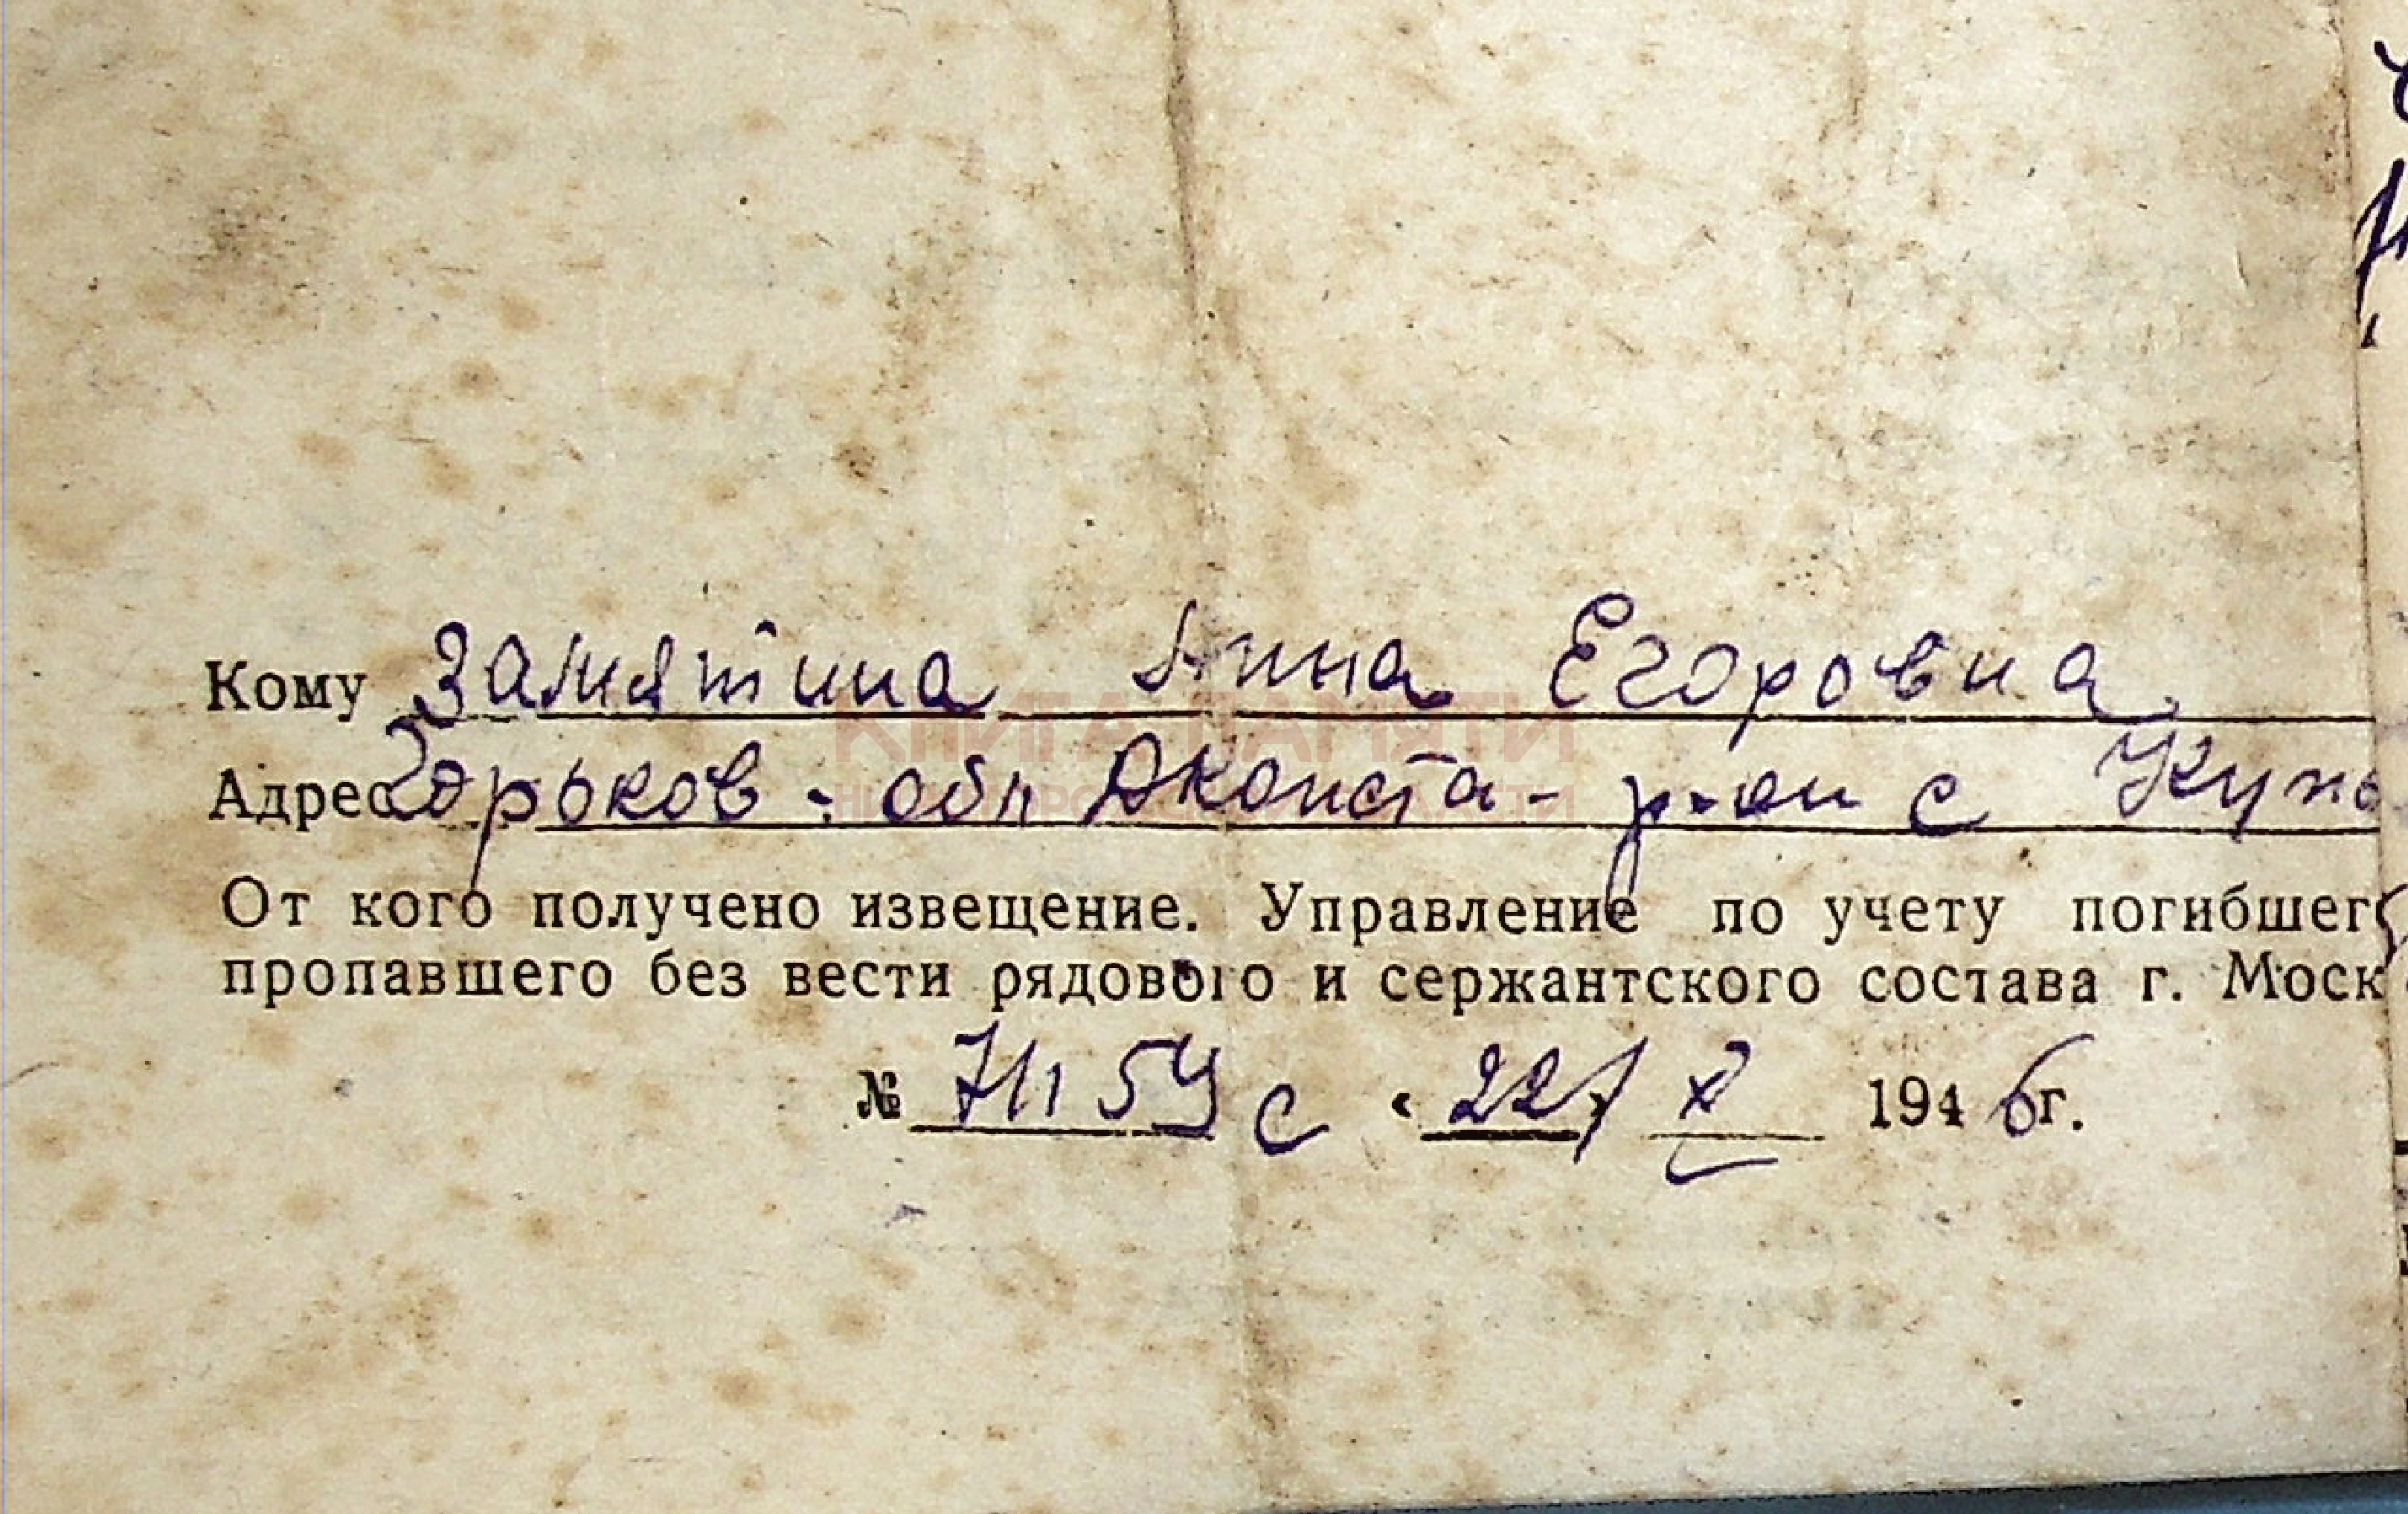 Кому Замятина Анна Егоровна
КНИГА ПАМЯТИ
Адрес Горьков. обл Дконста- р-он с
От кого получено извещение. Управление по учету погибшего
пропавшего без вести рядового и сержантского состава г. Моск
№ с «22» X 1946г.